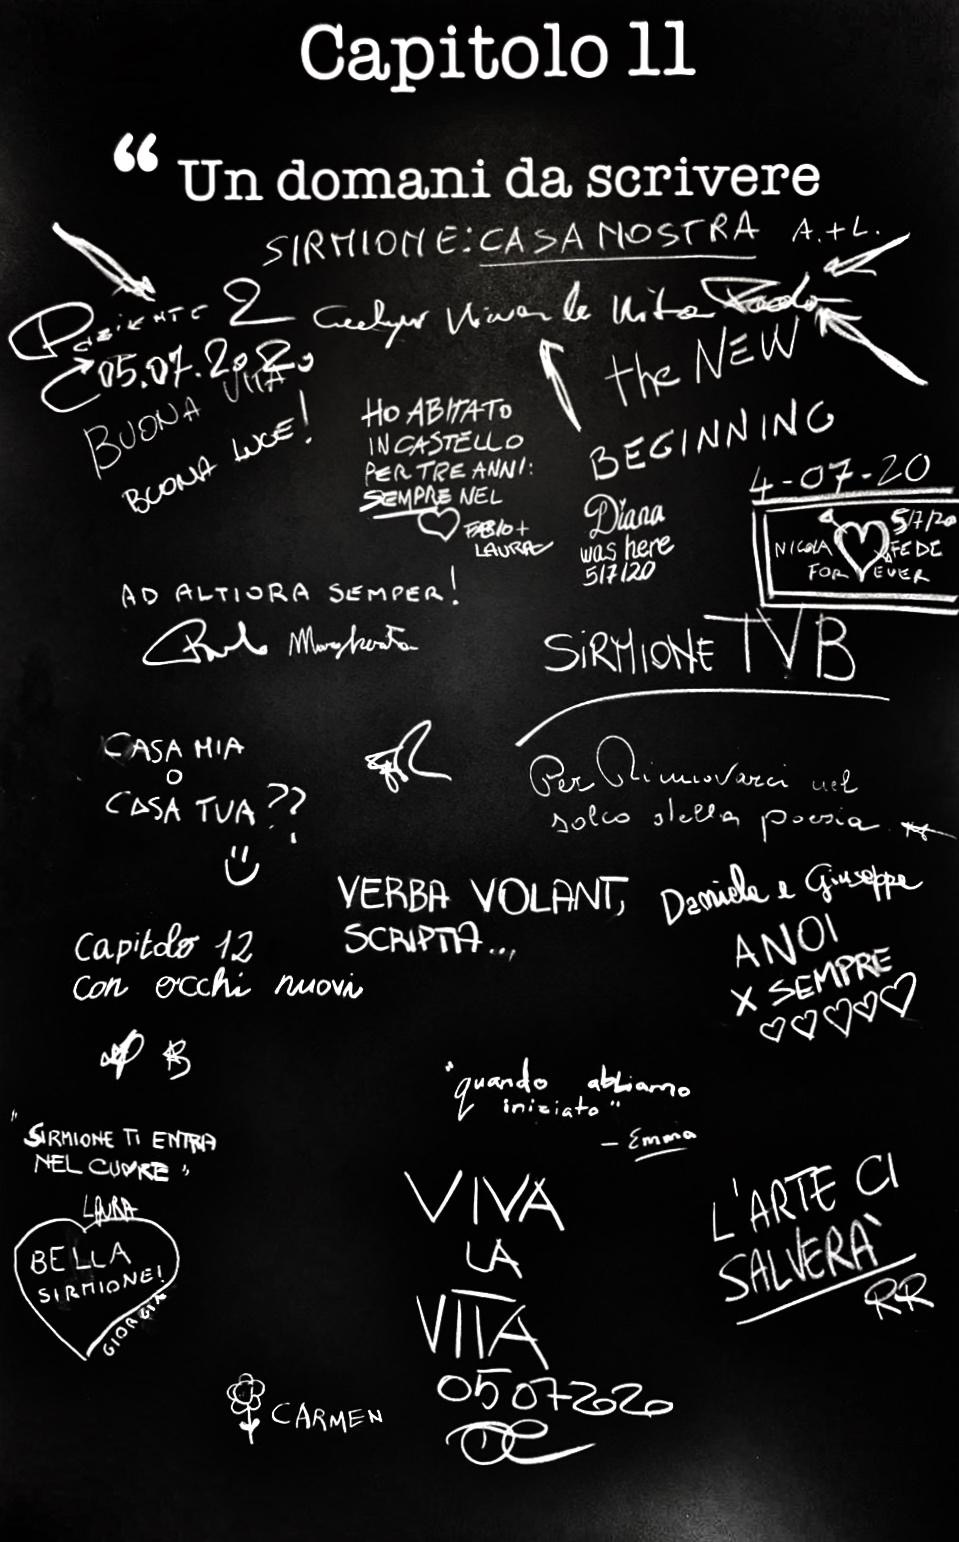 Capitolo 11
“ Un domani da scrivere
SIRMIONE: CASA NOSTRA A.+L.
PAZIENTE 2
05.07.2020
BUONA VITA
BUONA LUCE!
the NEW
BEGINNING
HO ABITATO
IN CASTELLO
PER TRE ANNI:
SEMPRE NEL
FABIO+
LAURA
Diana
was here
5/7/20
4-07-20
5/7/20
NICOLA FEDE
FOR EVER
AD ALTIORA SEMPER!
Margherita
SIRMIONE TVB
CASA MIA
O
CASA TUA??
Per Rinnovarci nel
solco della poesia
VERBA VOLANT,
SCRIPTA...
Daniela e Giuseppe
A NOI
X SEMPRE
Capitolo 12
con occhi nuovi
"quando abbiamo
iniziato"
- Emma
"SIRMIONE TI ENTRA
NEL CUORE"
LAURA
BELLA
SIRMIONE!
GIORGIA
VIVA
LA
VITA
05072020
L'ARTE CI
SALVERÀ
RR
CARMEN